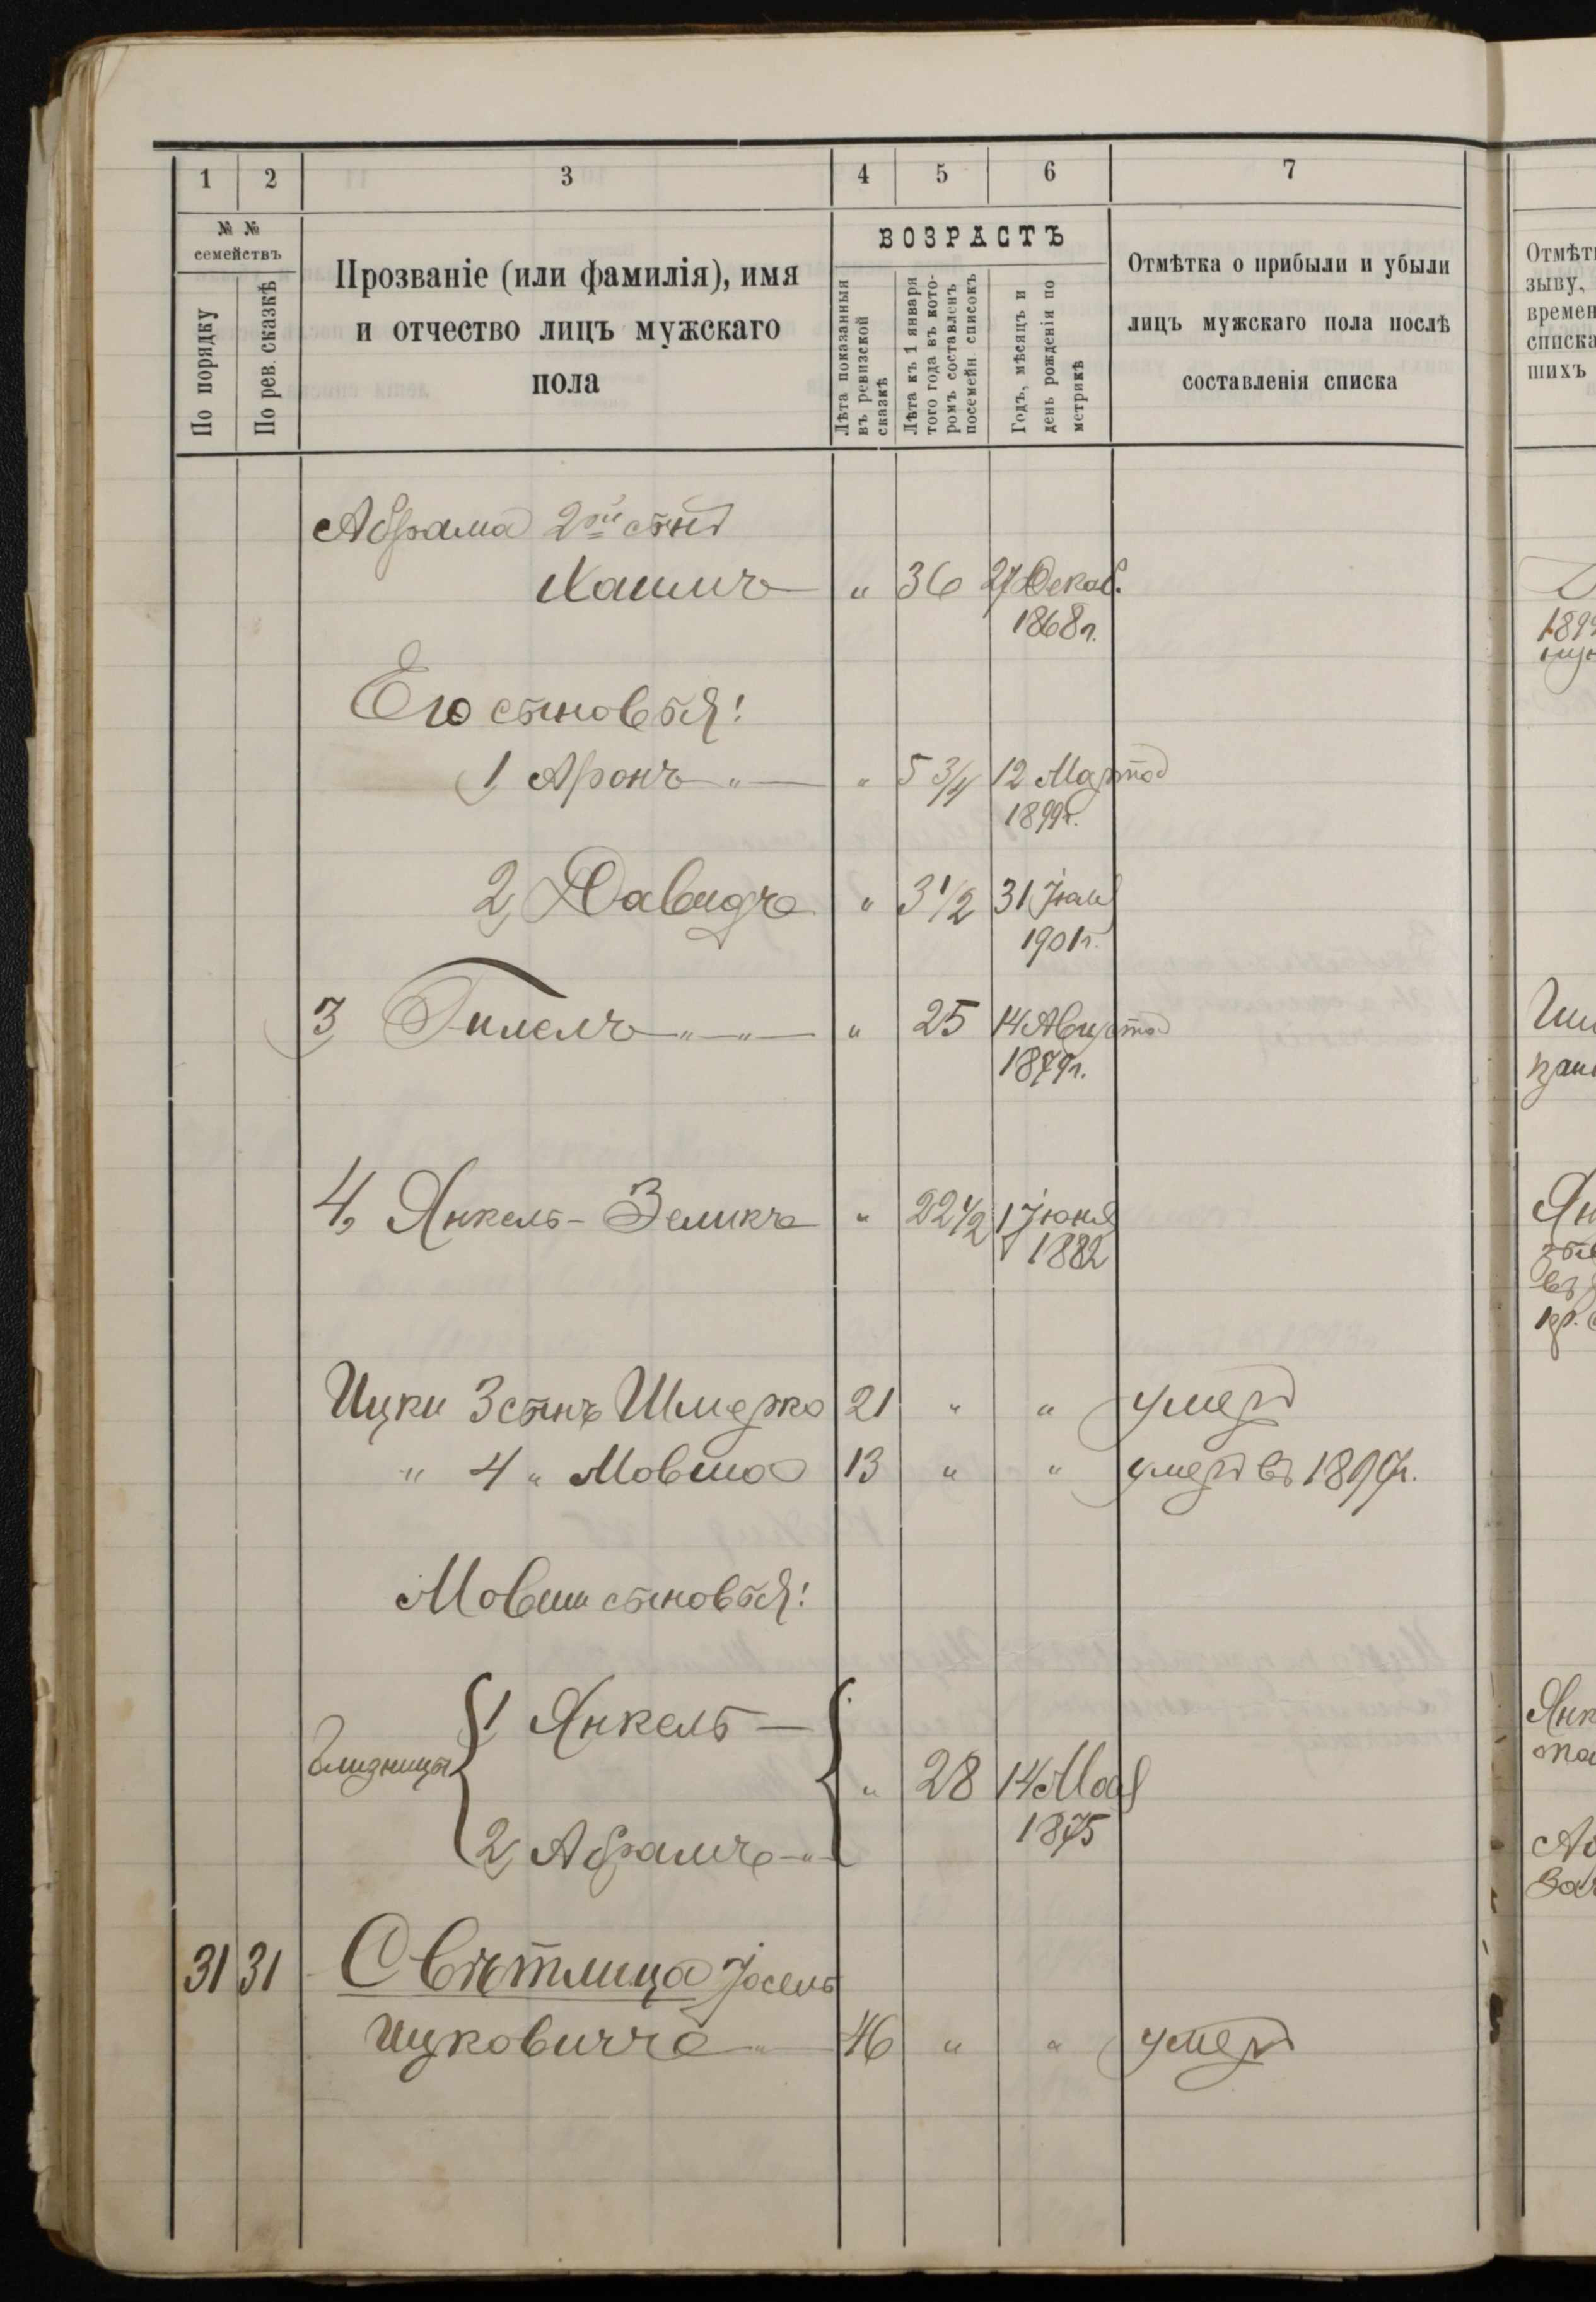 1 2 3 4 5 6 7
№ №
семействъ
По порядку
По рев. сказкѣ
Прозваніе (или фамилія), имя
и отчество лицъ мужскаго
пола
ВОЗРАСТЪ
Лѣта показанныя
въ ревизской
сказкѣ
Лѣта къ 1 января
того года въ кото-
ромъ составленъ
посемейн. списокъ
Годъ, мѣсяцъ и
день рожденія по
метрикѣ
Отмѣтка о прибыли и убыли
лицъ мужскаго пола послѣ
составленія списка
Абрама 2ой сынъ
Хаимъ " 36 27 Декаб.
1868 г.
Его сыновья:
1, Аронъ " " 5 3/4 12 Марта
1899 г.
2, Давидъ " 3 1/2 31 Іюля
1901 г.
3 Гилелъ " " " 25 14 Августа
1879 г.
4, Янкель-Зеликъ " 22 1/2 1 Іюня
1882
Ицки 3 сынъ Шмерко 21 " " умеръ
" 4 " Мовша 13 " " умеръ въ 1897 г.
Мовши сыновья:
1 Янкель
близнецы " 28 14 Мая
1875
2, Абрамъ "
31 31 Свѣтлица Іосель
Ицковичъ " 46 " " умеръ
Отмѣт
зыву,
времен
списка
шихъ
189
Янк